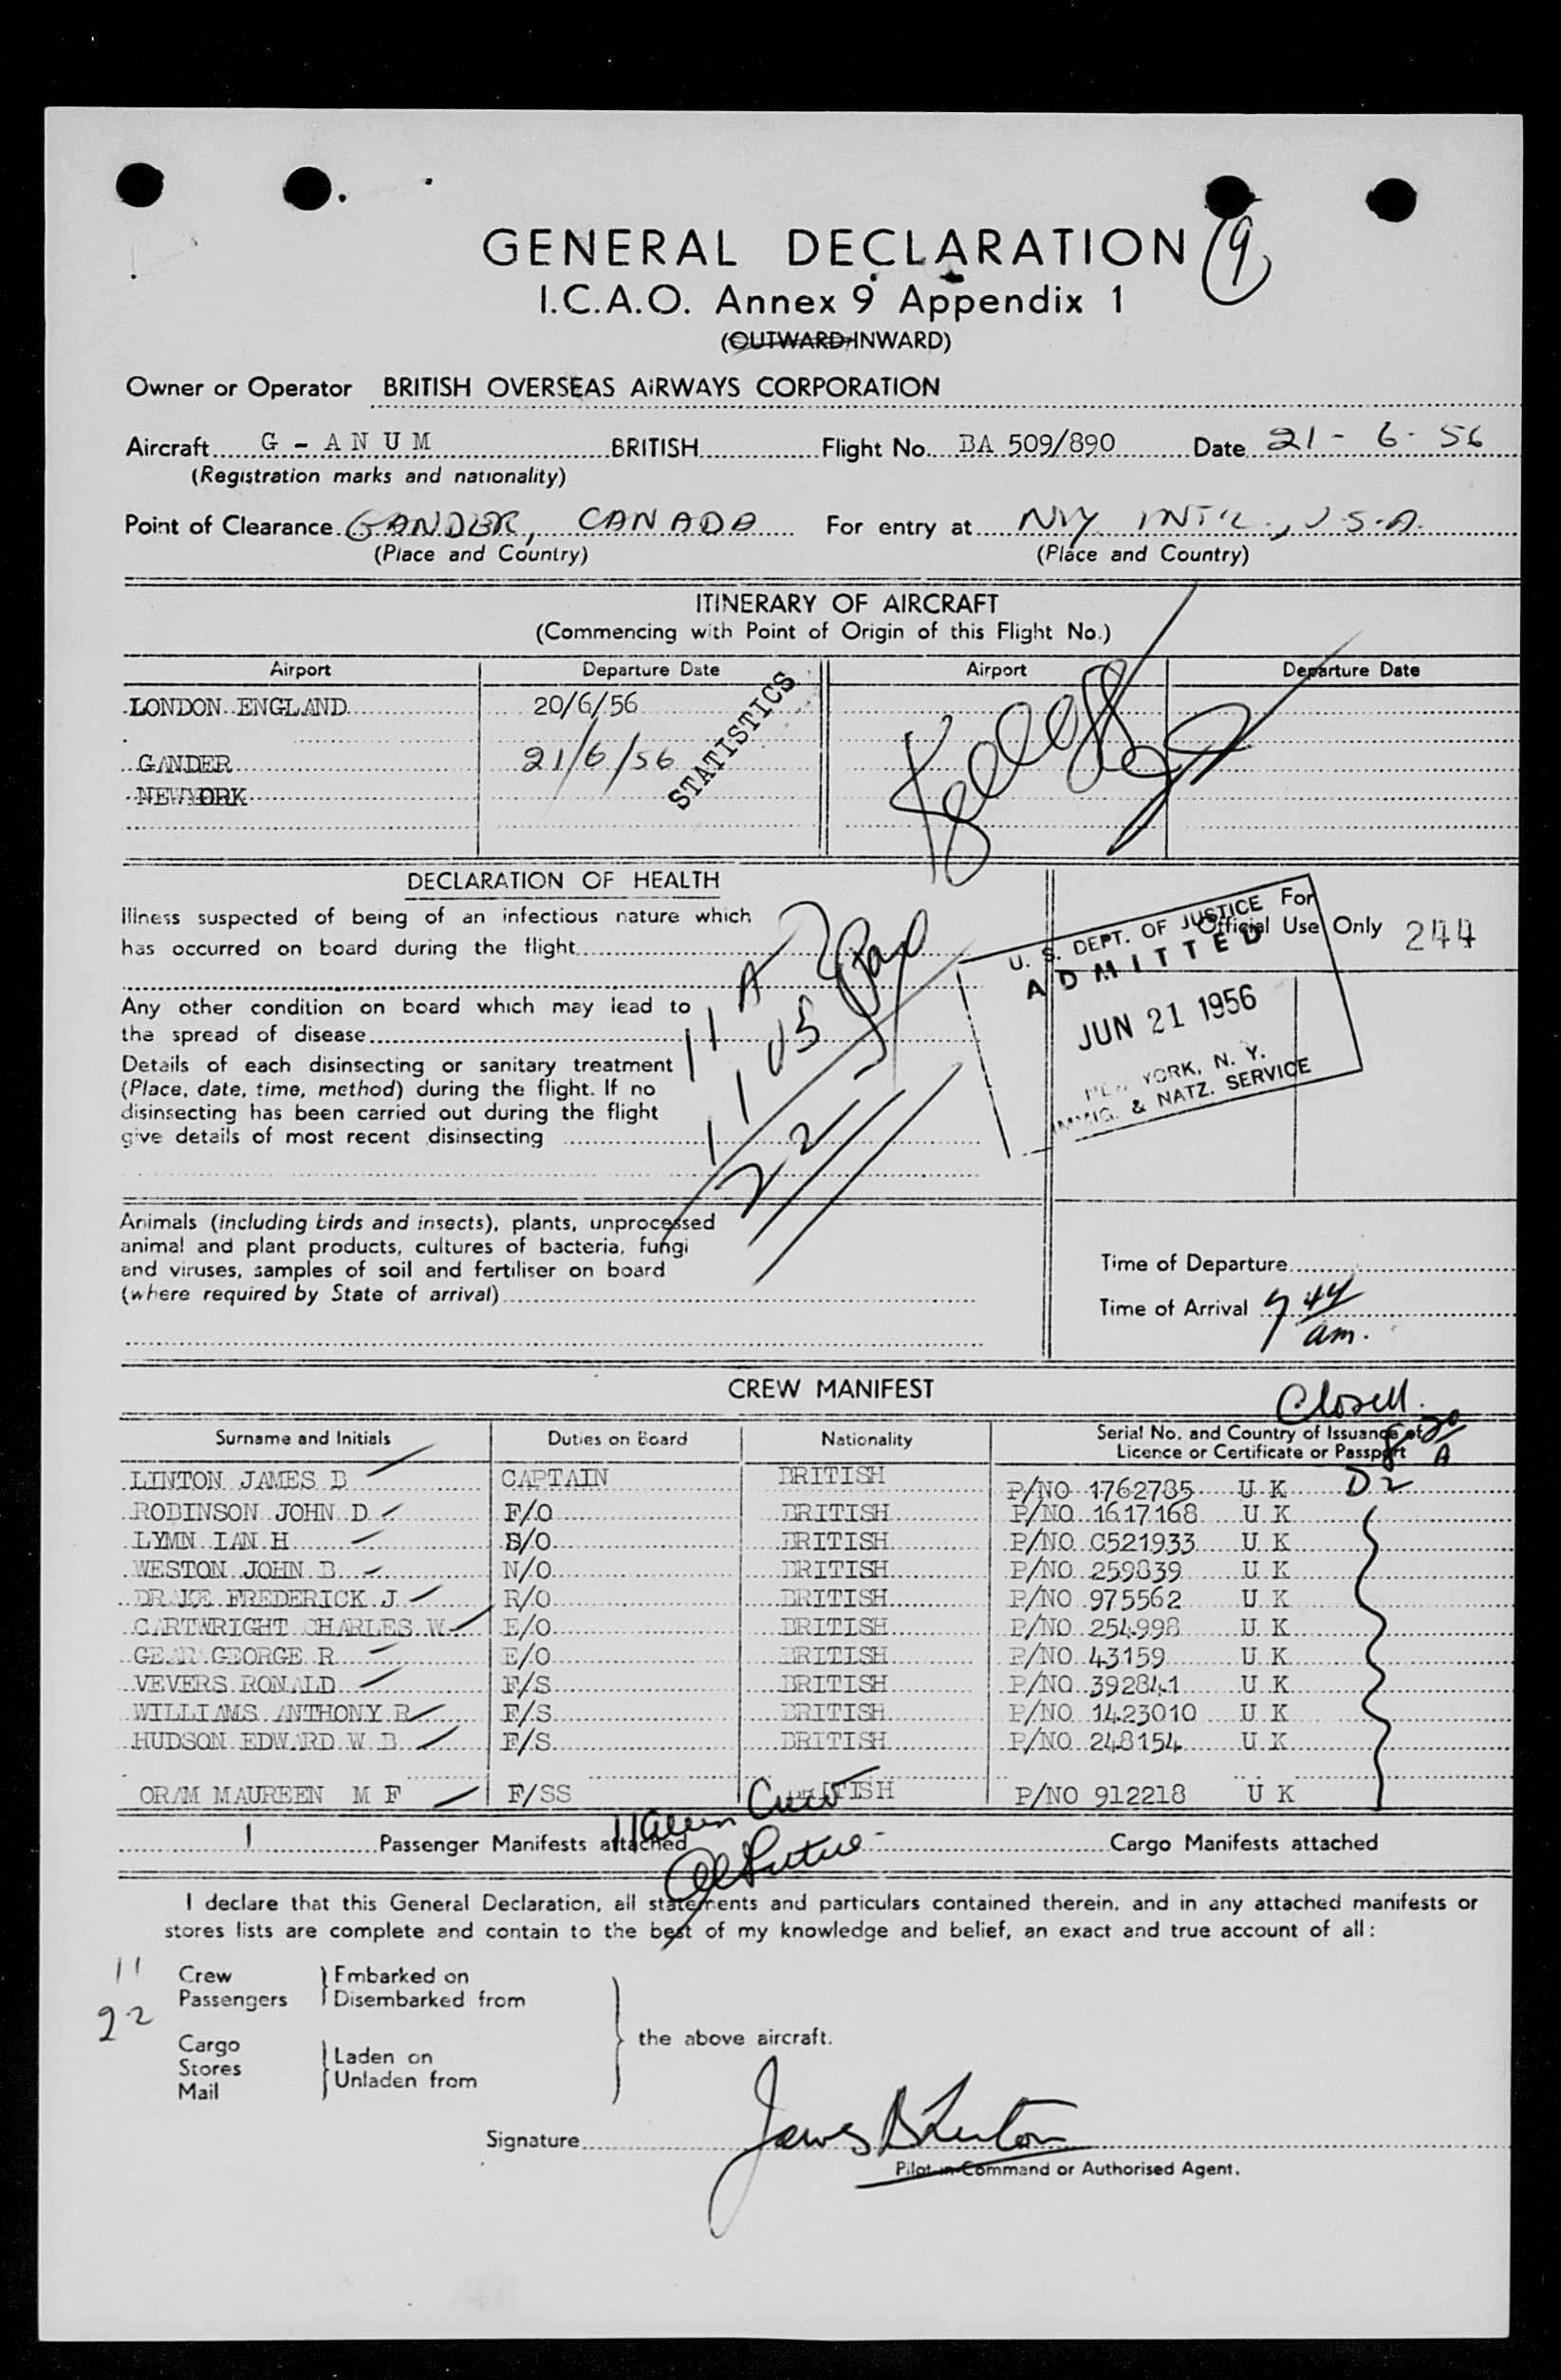 GENERAL DECLARATION 9
I.C.A.O. Annex 9 Appendix 1
(OUTWARD/INWARD)
Owner or Operator BRITISH OVERSEAS AIRWAYS CORPORATION
Aircraft G - A N U M BRITISH Flight No. BA 509/890 Date 21 - 6 - 56
(Registration marks and nationality)
Point of Clearance GANDER, CANADA For entry at NY INT'L., U.S.A.
(Place and Country) (Place and Country)
ITINERARY OF AIRCRAFT
(Commencing with Point of Origin of this Flight No.)
Airport Departure Date Airport Departure Date
LONDON ENGLAND 20/6/56
GANDER 21/6/56
NEWYORK
STATISTICS
DECLARATION OF HEALTH
Illness suspected of being of an infectious nature which
has occurred on board during the flight
Any other condition on board which may lead to
the spread of disease
Details of each disinsecting or sanitary treatment
(Place, date, time, method) during the flight. If no
disinsecting has been carried out during the flight
give details of most recent disinsecting
11 A
11 US
22
Pax
For
Official Use Only 244
U. S. DEPT. OF JUSTICE
ADMITTED
JUN 21 1956
NEW YORK, N. Y.
IMMIG. & NATZ. SERVICE
Animals (including birds and insects), plants, unprocessed
animal and plant products, cultures of bacteria, fungi
and viruses, samples of soil and fertiliser on board
(where required by State of arrival)
Time of Departure
Time of Arrival 9 44 am.
CREW MANIFEST
Surname and Initials Duties on Board Nationality Serial No. and Country of Issuance of
Licence or Certificate or Passport
LINTON JAMES B CAPTAIN BRITISH P/NO 1762785 U K D2
ROBINSON JOHN D F/O BRITISH P/NO 1617168 U K
LYMN IAN H E/O BRITISH P/NO C521933 U K
WESTON JOHN B N/O BRITISH P/NO 259839 U K
DRAKE FREDERICK J R/O BRITISH P/NO 975562 U K
CARTWRIGHT CHARLES W E/O BRITISH P/NO 254998 U K
GEAR GEORGE R E/O BRITISH P/NO 43159 U K
VEVERS RONALD F/S BRITISH P/NO 392841 U K
WILLIAMS ANTHONY R F/S BRITISH P/NO 1423010 U K
HUDSON EDWARD W B F/S BRITISH P/NO 248154 U K
ORAM MAUREEN M F F/SS BRITISH P/NO 912218 U K
11 Alien Crew
1 Passenger Manifests attached Cargo Manifests attached
I declare that this General Declaration, all statements and particulars contained therein, and in any attached manifests or
stores lists are complete and contain to the best of my knowledge and belief, an exact and true account of all:
11 Crew Embarked on
22 Passengers Disembarked from
the above aircraft.
Cargo
Stores
Mail
Laden on
Unladen from
Signature James B Linton
Pilot-in-Command or Authorised Agent.